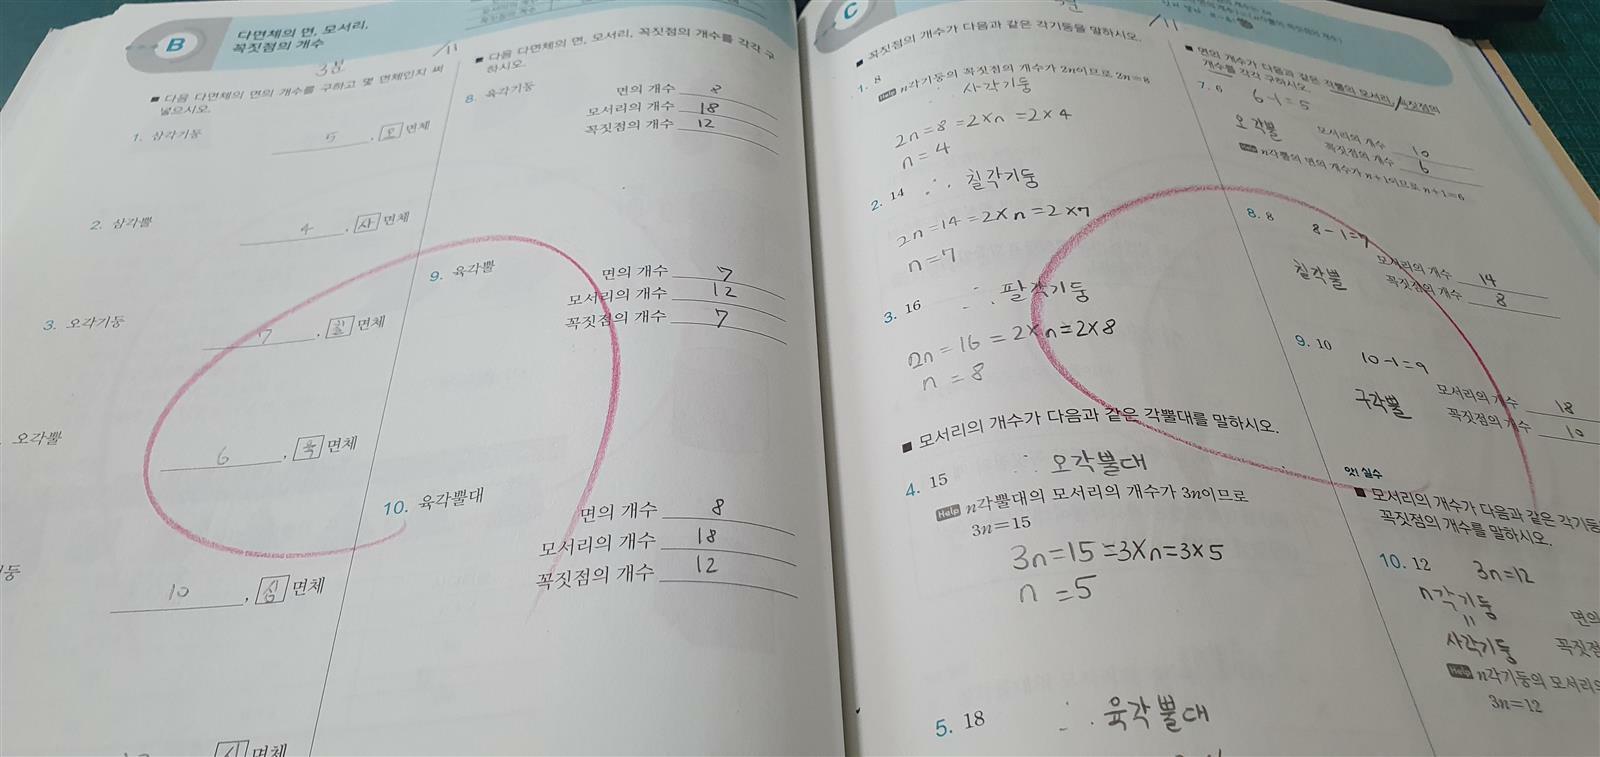 B 다면체의 면, 모서리,
꼭짓점의 개수
/11
3분
■ 다음 다면체의 면의 개수를 구하고 몇 면체인지 써
넣으시오.
1. 삼각기둥
5, 오 면체
2. 삼각뿔
4, 사 면체
3. 오각기둥
7, 칠 면체
오각뿔
6, 육 면체
둥
10, 십 면체
면체
■ 다음 다면체의 면, 모서리, 꼭짓점의 개수를 각각 구
하시오.
8. 육각기둥
면의 개수 8
모서리의 개수 18
꼭짓점의 개수 12
9. 육각뿔
면의 개수 7
모서리의 개수 12
꼭짓점의 개수 7
10. 육각뿔대
면의 개수 8
모서리의 개수 18
꼭짓점의 개수 12
C
/11
■ 꼭짓점의 개수가 다음과 같은 각기둥을 말하시오.
1. 8
Help n각기둥의 꼭짓점의 개수가 2n이므로 2n=8
∴ 사각기둥
2n=8=2×n=2×4
n=4
2. 14 ∴ 칠각기둥
2n=14=2×n=2×7
n=7
3. 16 ∴ 팔각기둥
2n=16=2×n=2×8
n=8
■ 모서리의 개수가 다음과 같은 각뿔대를 말하시오.
4. 15 ∴ 오각뿔대
Help n각뿔대의 모서리의 개수가 3n이므로
3n=15
3n=15=3×n=3×5
n=5
5. 18 ∴ 육각뿔대
■ 면의 개수가 다음과 같은 각뿔의 모서리, 꼭짓점의
개수를 각각 구하시오.
7. 6
6-1=5
오각뿔
모서리의 개수 10
꼭짓점의 개수 6
Help n각뿔의 면의 개수가 n+1이므로 n+1=6
8. 8
8-1=7
칠각뿔
모서리의 개수 14
꼭짓점의 개수 8
9. 10
10-1=9
구각뿔
모서리의 개수 18
꼭짓점의 개수 10
앗! 실수
■ 모서리의 개수가 다음과 같은 각기둥
꼭짓점의 개수를 말하시오.
10. 12 3n=12
n각기둥
=
사각기둥
면의
꼭짓점
Help n각기둥의 모서리의
3n=12